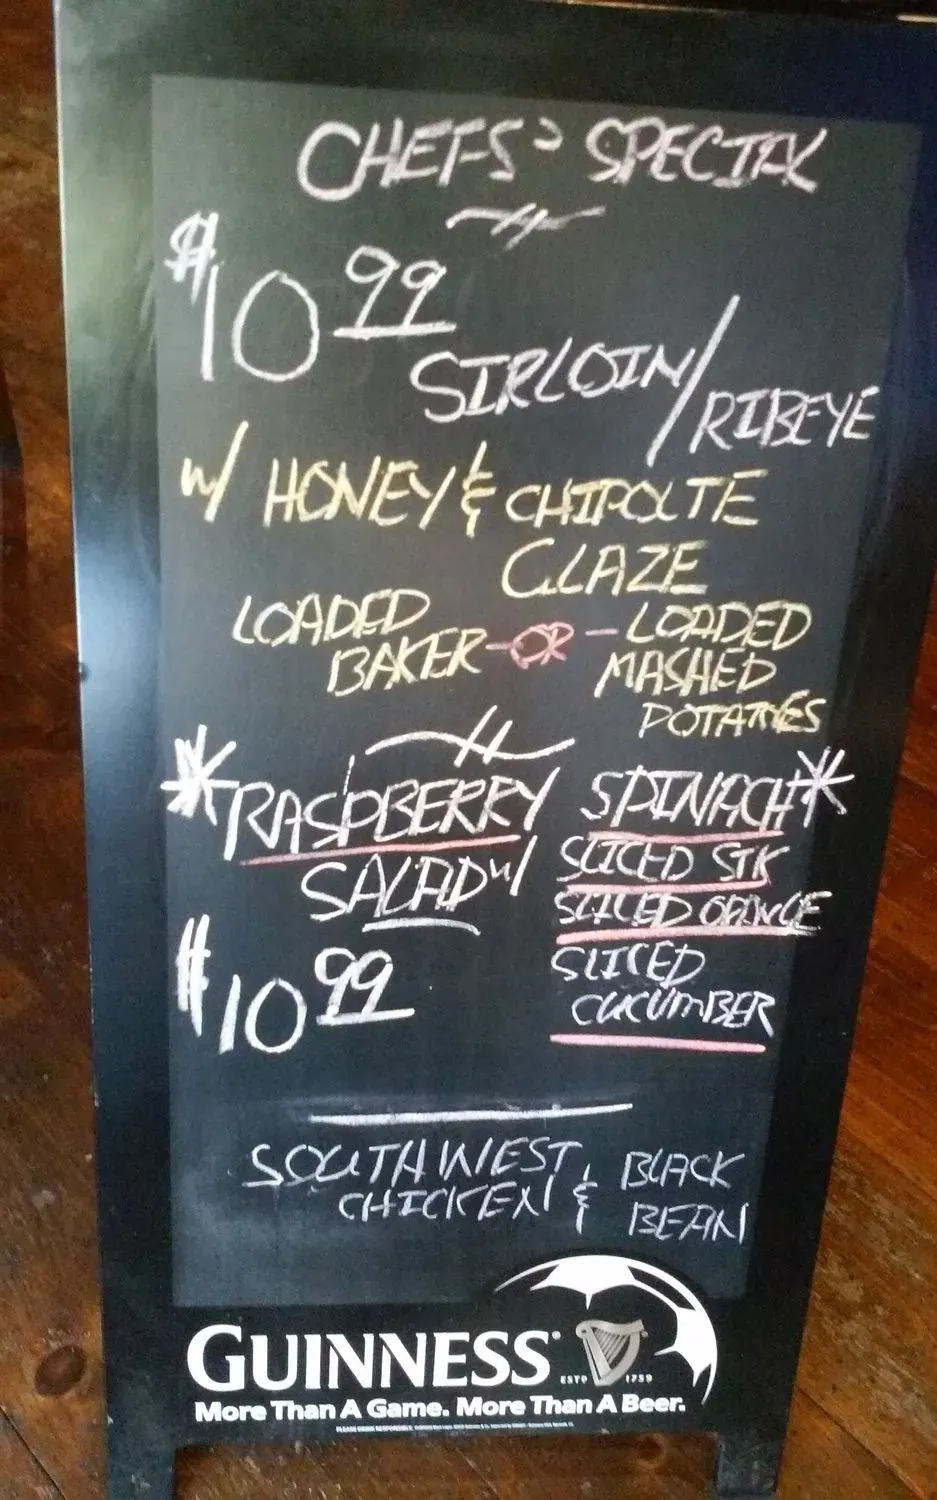 CHEFS' SPECIAL
$10.99
SIRLOIN/RIBEYE
w/ HONEY & CHIPOLTE
GLAZE
LOADED BAKER -OR- LOADED MASHED POTATOES
*RASPBERRY SALAD w/
SPINACH*
SLICED STK
SLICED ORANGE
SLICED
CUCUMBER
$10.99
SOUTHWEST
CHICKEN & BLACK BEAN
GUINNESS®
ESTD 1759
More Than A Game. More Than A Beer.